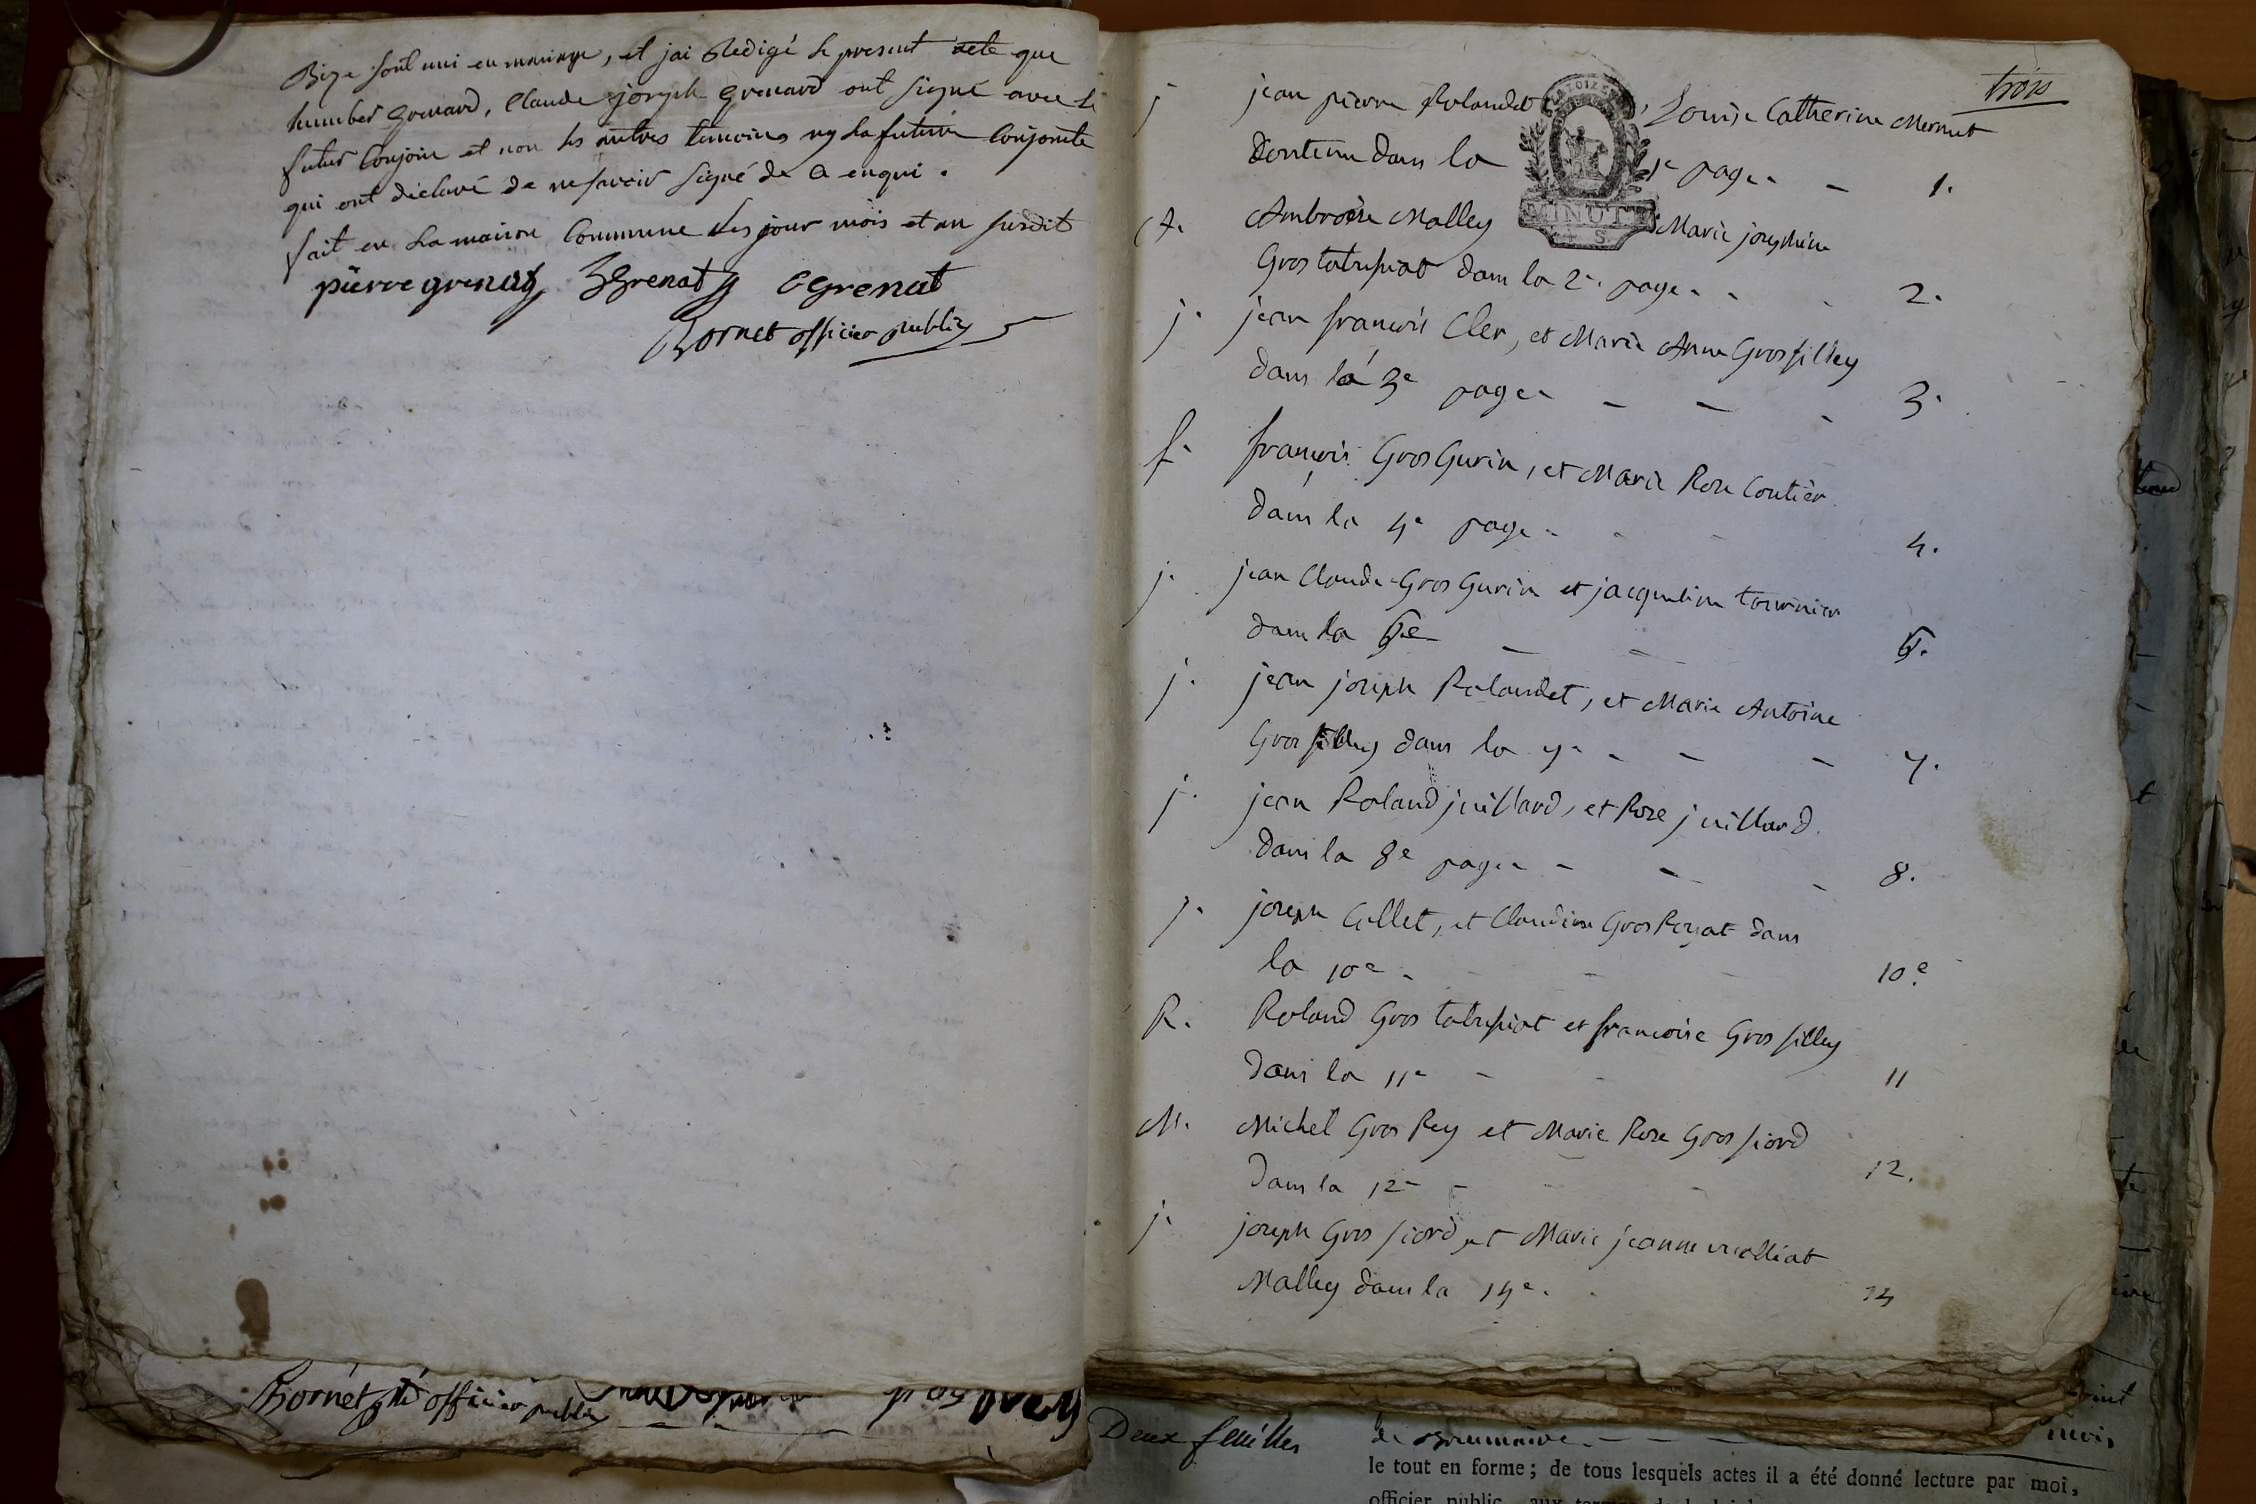 Bize sont uni en mariage, et jai Redigé le present acte que
humber grenard, Claude joseph grenard ont signé avec le
futur Conjoin et non les autres temoins ny la future Conjointe
qui ont déclaré de ne savoir signé de a enqui.
fait en la maison Commune les jour mois et an susdit
pierre grenat JGrenat CGrenat
Bornet officier public
Bornet officier public
trois
j jean pierre Rolandet, Louise Catherine Mermet
Contenu dans la 1e page - 1.
A. Ambroise Malley Marie josephine
Gros tabusiat dans la 2e page - - - 2.
j. jean francois Cler, et Marie Anne Grosfilley
dans la 3e page - - - - 3.
f. francois GrosGurin, et Marie Rose Coutier
dans la 4e page - - - 4.
j. jean Claude GrosGurin et jacqueline tournier
dans la 6e - - 6.
j. jean joseph Rolandet, et Marie Antoine
Grosfilley dans la 7e - - - 7.
j. jean Roland juillard, et Rose juillard
dans la 8e page - - - - 8.
j. joseph Collet, et Claudine Gros dans
la 10e - - - 10e.
R. Roland Gros tabusiat et francoise Grosfilley
dans la 11e - - 11
M. Michel Gros Rey et Marie Rose Gros fiord
dans la 12e - - - 12.
j. joseph Gros fiord et Marie jeanne
Malley dans la 14e. 14
Deux feuilles
le tout en forme; de tous lesquels actes il a été donné lecture par moi,
officier public
LA LOI
MINUTE